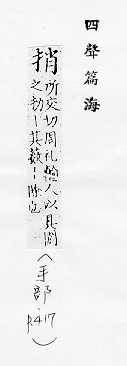 四聲篇海
捎 所交切周礼輪人以其圍
之劫丨其藪丨除也
(手部.P.417)